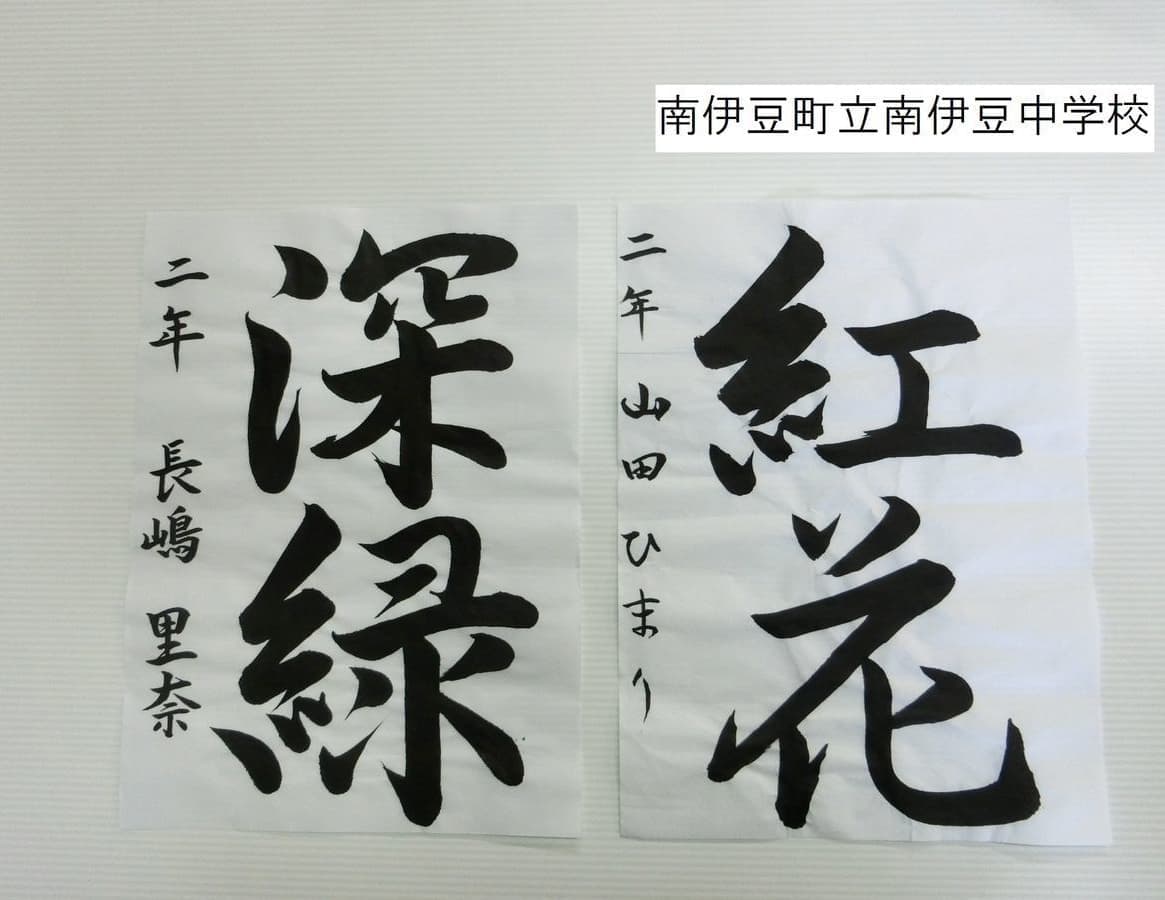 南伊豆町立南伊豆中学校
紅花
二年 山田 ひまり
深緑
二年 長嶋 里奈